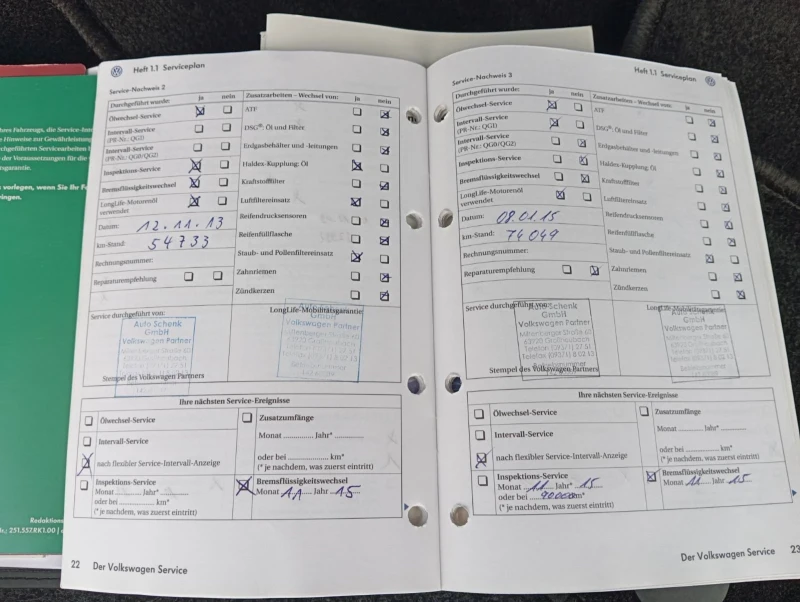 Heft 1.1 Serviceplan
Service-Nachweis 2
Durchgeführt wurde: ja nein
Ölwechsel-Service
Intervall-Service
(PR-Nr.: QG1)
Intervall-Service
(PR-Nr.: QG0/QG2)
Inspektions-Service
Bremsflüssigkeitswechsel
LongLife-Motorenöl
verwendet
Datum: 12.11.13
km-Stand: 54733
Rechnungsnummer:
Reparaturempfehlung
Zusatzarbeiten – Wechsel von: ja nein
ATF
DSG®: Öl und Filter
Erdgasbehälter und -leitungen
Haldex-Kupplung: Öl
Kraftstofffilter
Luftfiltereinsatz
Reifendrucksensoren
Reifenfüllflasche
Staub- und Pollenfiltereinsatz
Zahnriemen
Zündkerzen
Service durchgeführt von:
LongLife-Mobilitätsgarantie
Auto Schenk
GmbH
Volkswagen Partner
GmbH
Volkswagen Partner
Stempel des Volkswagen Partners
Ihre nächsten Service-Ereignisse
Ölwechsel-Service
Intervall-Service
nach flexibler Service-Intervall-Anzeige
Inspektions-Service
Monat ........ Jahr* ........
oder bei ................ km*
(* je nachdem, was zuerst eintritt)
Zusatzumfänge
Monat ............. Jahr* .............
oder bei ........................ km*
(* je nachdem, was zuerst eintritt)
Bremsflüssigkeitswechsel
Monat 11 Jahr 15
22 Der Volkswagen Service
Heft 1.1 Serviceplan
Service-Nachweis 3
Durchgeführt wurde: ja nein
Ölwechsel-Service
Intervall-Service
(PR-Nr.: QG1)
Intervall-Service
(PR-Nr.: QG0/QG2)
Inspektions-Service
Bremsflüssigkeitswechsel
LongLife-Motorenöl
verwendet
Datum: 08.01.15
km-Stand: 74049
Rechnungsnummer:
Reparaturempfehlung
Zusatzarbeiten – Wechsel von: ja nein
ATF
DSG®: Öl und Filter
Erdgasbehälter und -leitungen
Haldex-Kupplung: Öl
Kraftstofffilter
Luftfiltereinsatz
Reifendrucksensoren
Reifenfüllflasche
Staub- und Pollenfiltereinsatz
Zahnriemen
Zündkerzen
Service durchgeführt von:
LongLife-Mobilitätsgarantie
Auto Schenk
GmbH
Volkswagen Partner
GmbH
Volkswagen Partner
Stempel des Volkswagen Partners
Ihre nächsten Service-Ereignisse
Ölwechsel-Service
Intervall-Service
nach flexibler Service-Intervall-Anzeige
Inspektions-Service
Monat 11 Jahr* 15
oder bei 90000 km*
(* je nachdem, was zuerst eintritt)
Zusatzumfänge
Monat ............. Jahr* .............
oder bei ........................ km*
(* je nachdem, was zuerst eintritt)
Bremsflüssigkeitswechsel
Monat 11 Jahr 15
Der Volkswagen Service 23